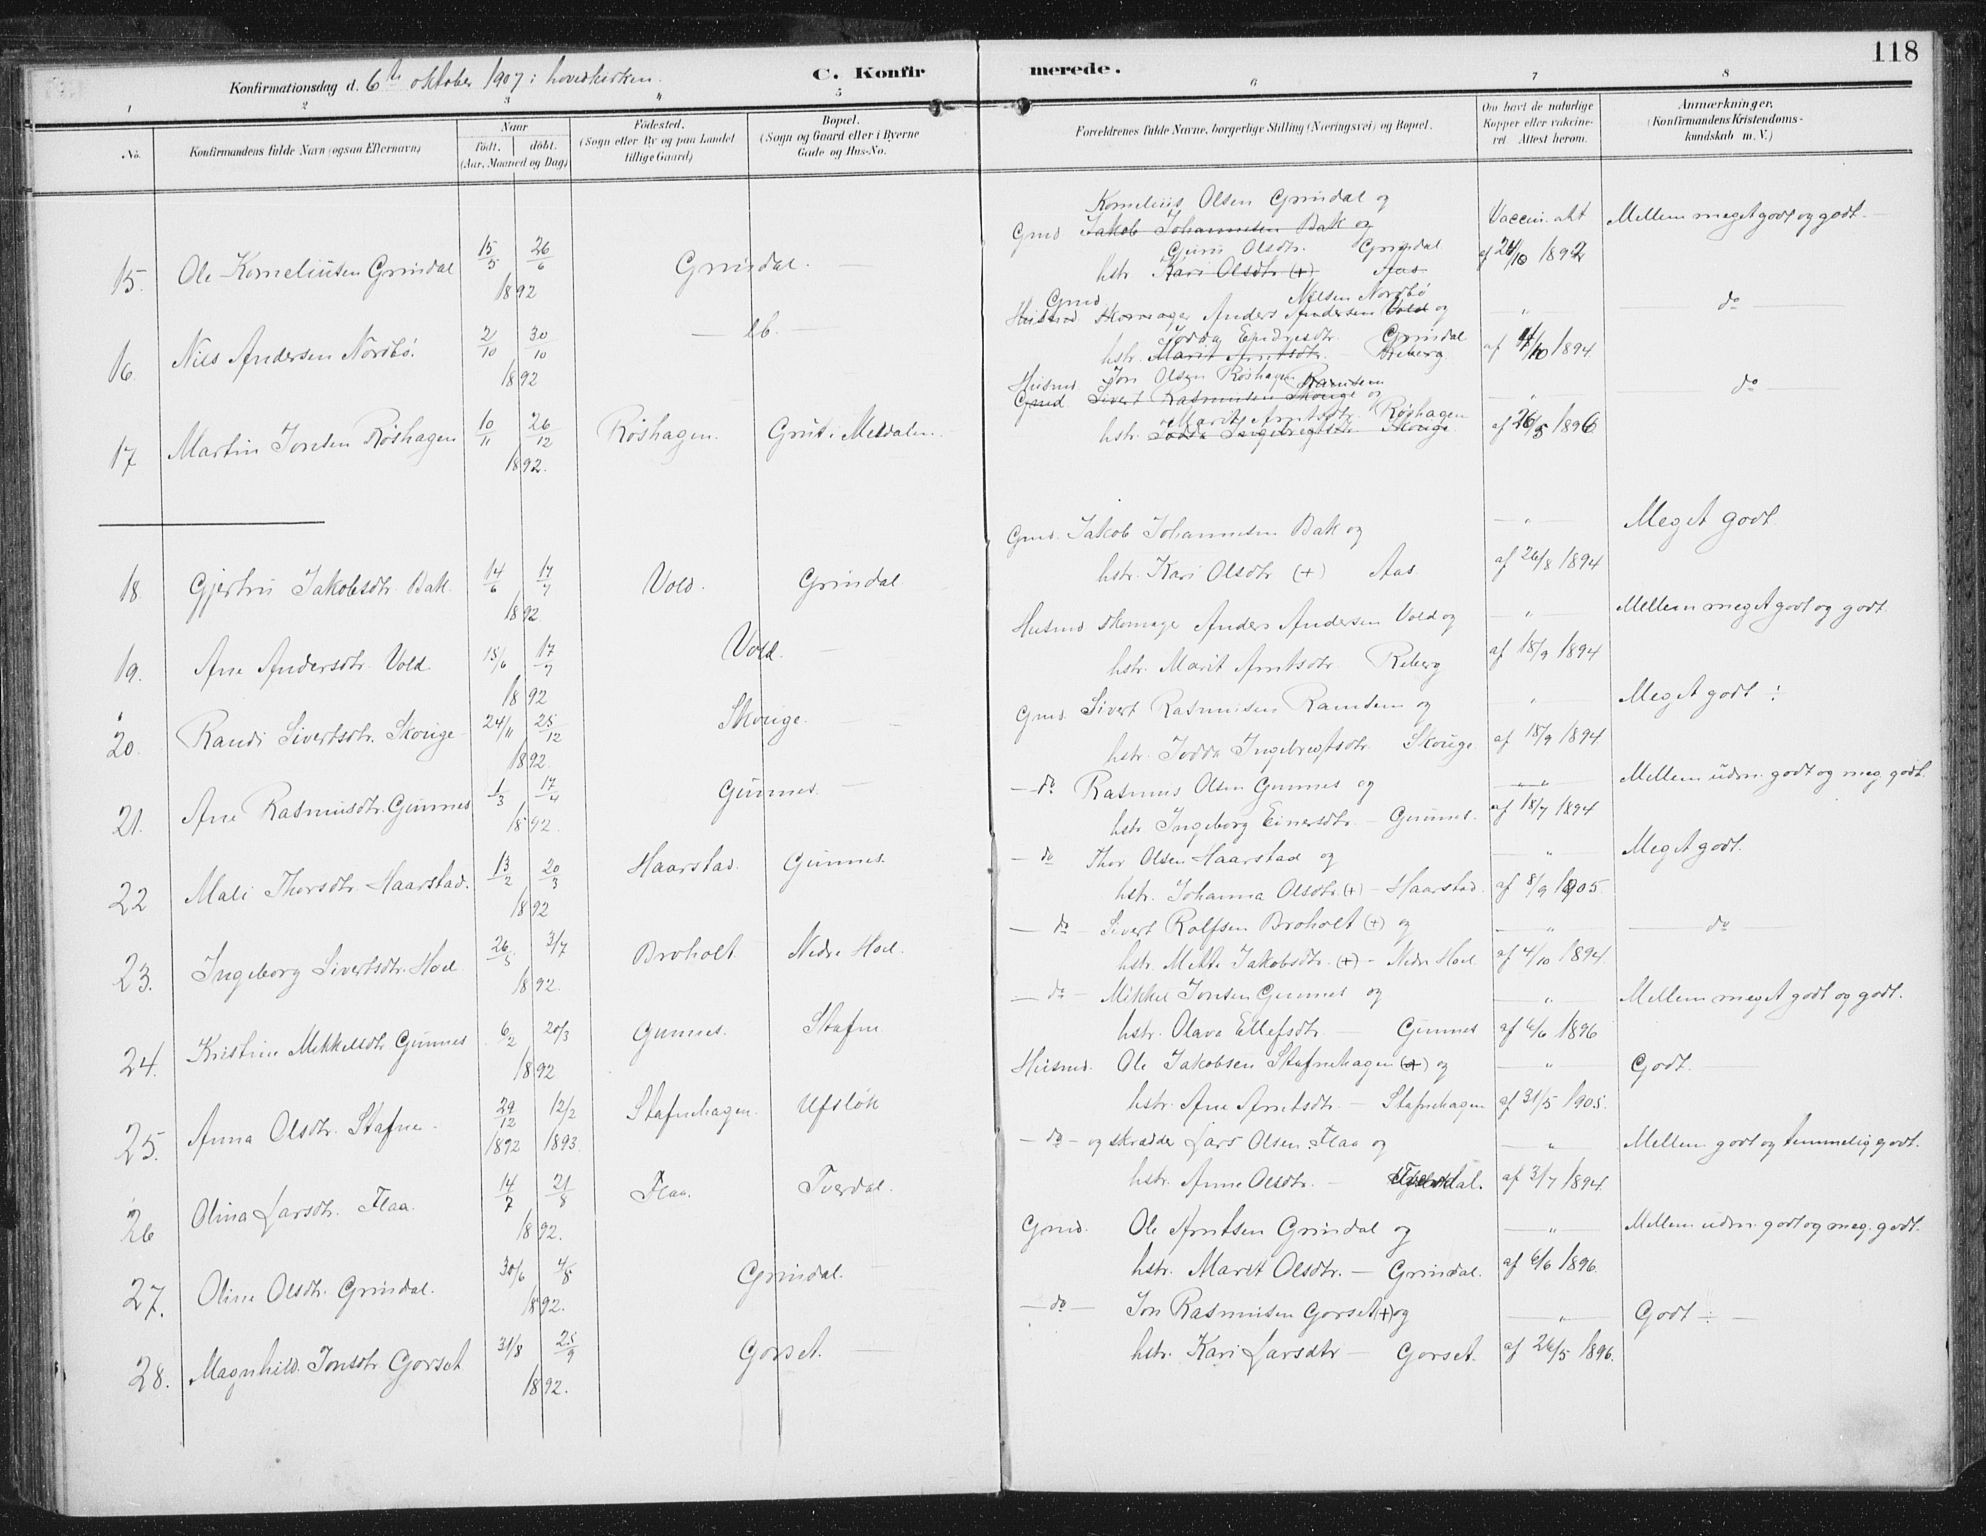 118
Konfirmationsdag d. 6te oktober 1907 i hovedkirken.
C. Konfirmerede.
1 2 3 4 5 6 7 8
No.
Konfirmandens fulde Navn (ogsaa Efternavn)
Naar
født. døbt.
(Aar, Maaned og Dag)
Fødested.
(Sogn eller By og paa Landet
tillige Gaard)
Bopæl.
(Sogn og Gaard eller i Byerne
Gade og Hus-No.
Forældrenes fulde Navne, borgerlige Stilling (Næringsvei) og Bopæl.
Om havt de naturlige
Kopper eller vaccine-
ret. Attest herom.
Anmærkninger.
(Konfirmandens Kristendoms-
kundskab m. V.)
15. Ole Korneliusen Grindal 15/5 26/6 1892 Grindal.
Kornelius Olsen Grindal og
Gmd Jakob Johannesen Bak og
Guru Olsdtr. Grindal
hstr. Kari Olsdtr (+) Aas
Vaccin. att af 24/10 1892 Mellem meget godt og godt.
16. Nils Andersen Nordbø. 2/10 30/10 1892 ib.
Gmd. Nielsen Nordbø
Husmd skomager Anders Andersen Vold og
Jodda Endresdtr. Grindal
hstr. Marit Arntsdtr. Reberg
" af 4/10 1894 do
17 Martin Jonsen Røshagen 10/11 26/12 1892. Røshagen. Grut i Meldalen.
Husmd Jon Olsen Røshagen
Gmd Sivert Rasmusen Skouge og Ramsem
Marit Arntsdtr. Røshagen
hstr. Jodda Ingebregtsdtr Skouge
" af 26/5 1896 do
18. Gjertru Jakobsdtr. Bak. 14/6 17/7 1892 Vold. Grindal
Gmd. Jakob Johannesen Bak og
hstr. Kari Olsdtr (+) Aas
" af 26/8 1894 Meget godt
19. Ane Andersdtr. Vold 15/6 17/7 1892 Vold.
Husmd skomager Anders Andersen Vold og
hstr. Marit Arntsdtr Reberg
" af 18/9 1894 Mellem meget godt og godt.
20. Randi Sivertsdtr. Skouge 24/11 25/12 1892. Skouge.
Gmd. Sivert Rasmusen Ramsem og
hstr. Jodda Ingebregtsdtr Skouge
" af 18/9 1894 Meget godt ÷
21. Ane Rasmusdtr. Gunnes 1/3 17/4 1892. Gunnes.
do Rasmus Olsen Gunnes og
hstr. Ingeborg Einersdtr. — Gunnes.
" af 18/7 1894 Mellem udm. godt og meg. godt.
22 Mali Thorsdtr. Haarstad. 13/2 20/3 1892 Haarstad. Gunnes.
do Thor Olsen Haarstad og
hstr. Johanna Olsdtr. (+) — Haarstad.
" af 8/9 1905. Meget godt.
23. Ingeborg Sivertsdtr. Hoel 26/5 3/7 1892. Broholt Nedre Hoel.
do Sivert Rolfsen Broholt (+) og
hstr. Mette Jakobsdtr. (+) — Nedre Hoel
" af 4/10 1894 do
24. Kristine Mikkelsdtr Gunnes 6/2 20/3 1892 Gunnes. Stafne
do Mikkel Jonsen Gunnes og
hstr. Olava Ellefsdtr — Gunnes
" af 6/6 1896 Mellem meget godt og godt.
25. Anna Olsdtr. Stafne. 29/12 1892 12/2 1893. Stafnehagen. Ufsløk
Husmd. Ole Jakobsen Stafnehagen (+) og
hstr. Ane Arntsdtr. — Stafnehagen
" af 31/5 1905. Godt.
26 Olina Larsdtr. Flaa. 14/7 21/8 1892. Flaa. Tverdal.
do og skrædder Lars Olsen Flaa og
hstr. Anne Olsdtr. —
" af 3/7 1894. Mellem godt og temmelig godt.
27. Oline Olsdtr. Grindal. 30/6 4/8 1892. Grindal.
Gmd. Ole Arntsen Grindal og
hstr. Marit Olsdtr. — Grindal.
" af 6/6 1896. Mellem udm. godt og meg. godt.
28. Magnhild Jonsdtr Gorset 31/8 25/9 1892. Gorset.
do Jon Rasmusen Gorset (+) og
hstr. Kari Larsdtr — Gorset.
" af 26/5 1896. Godt ÷